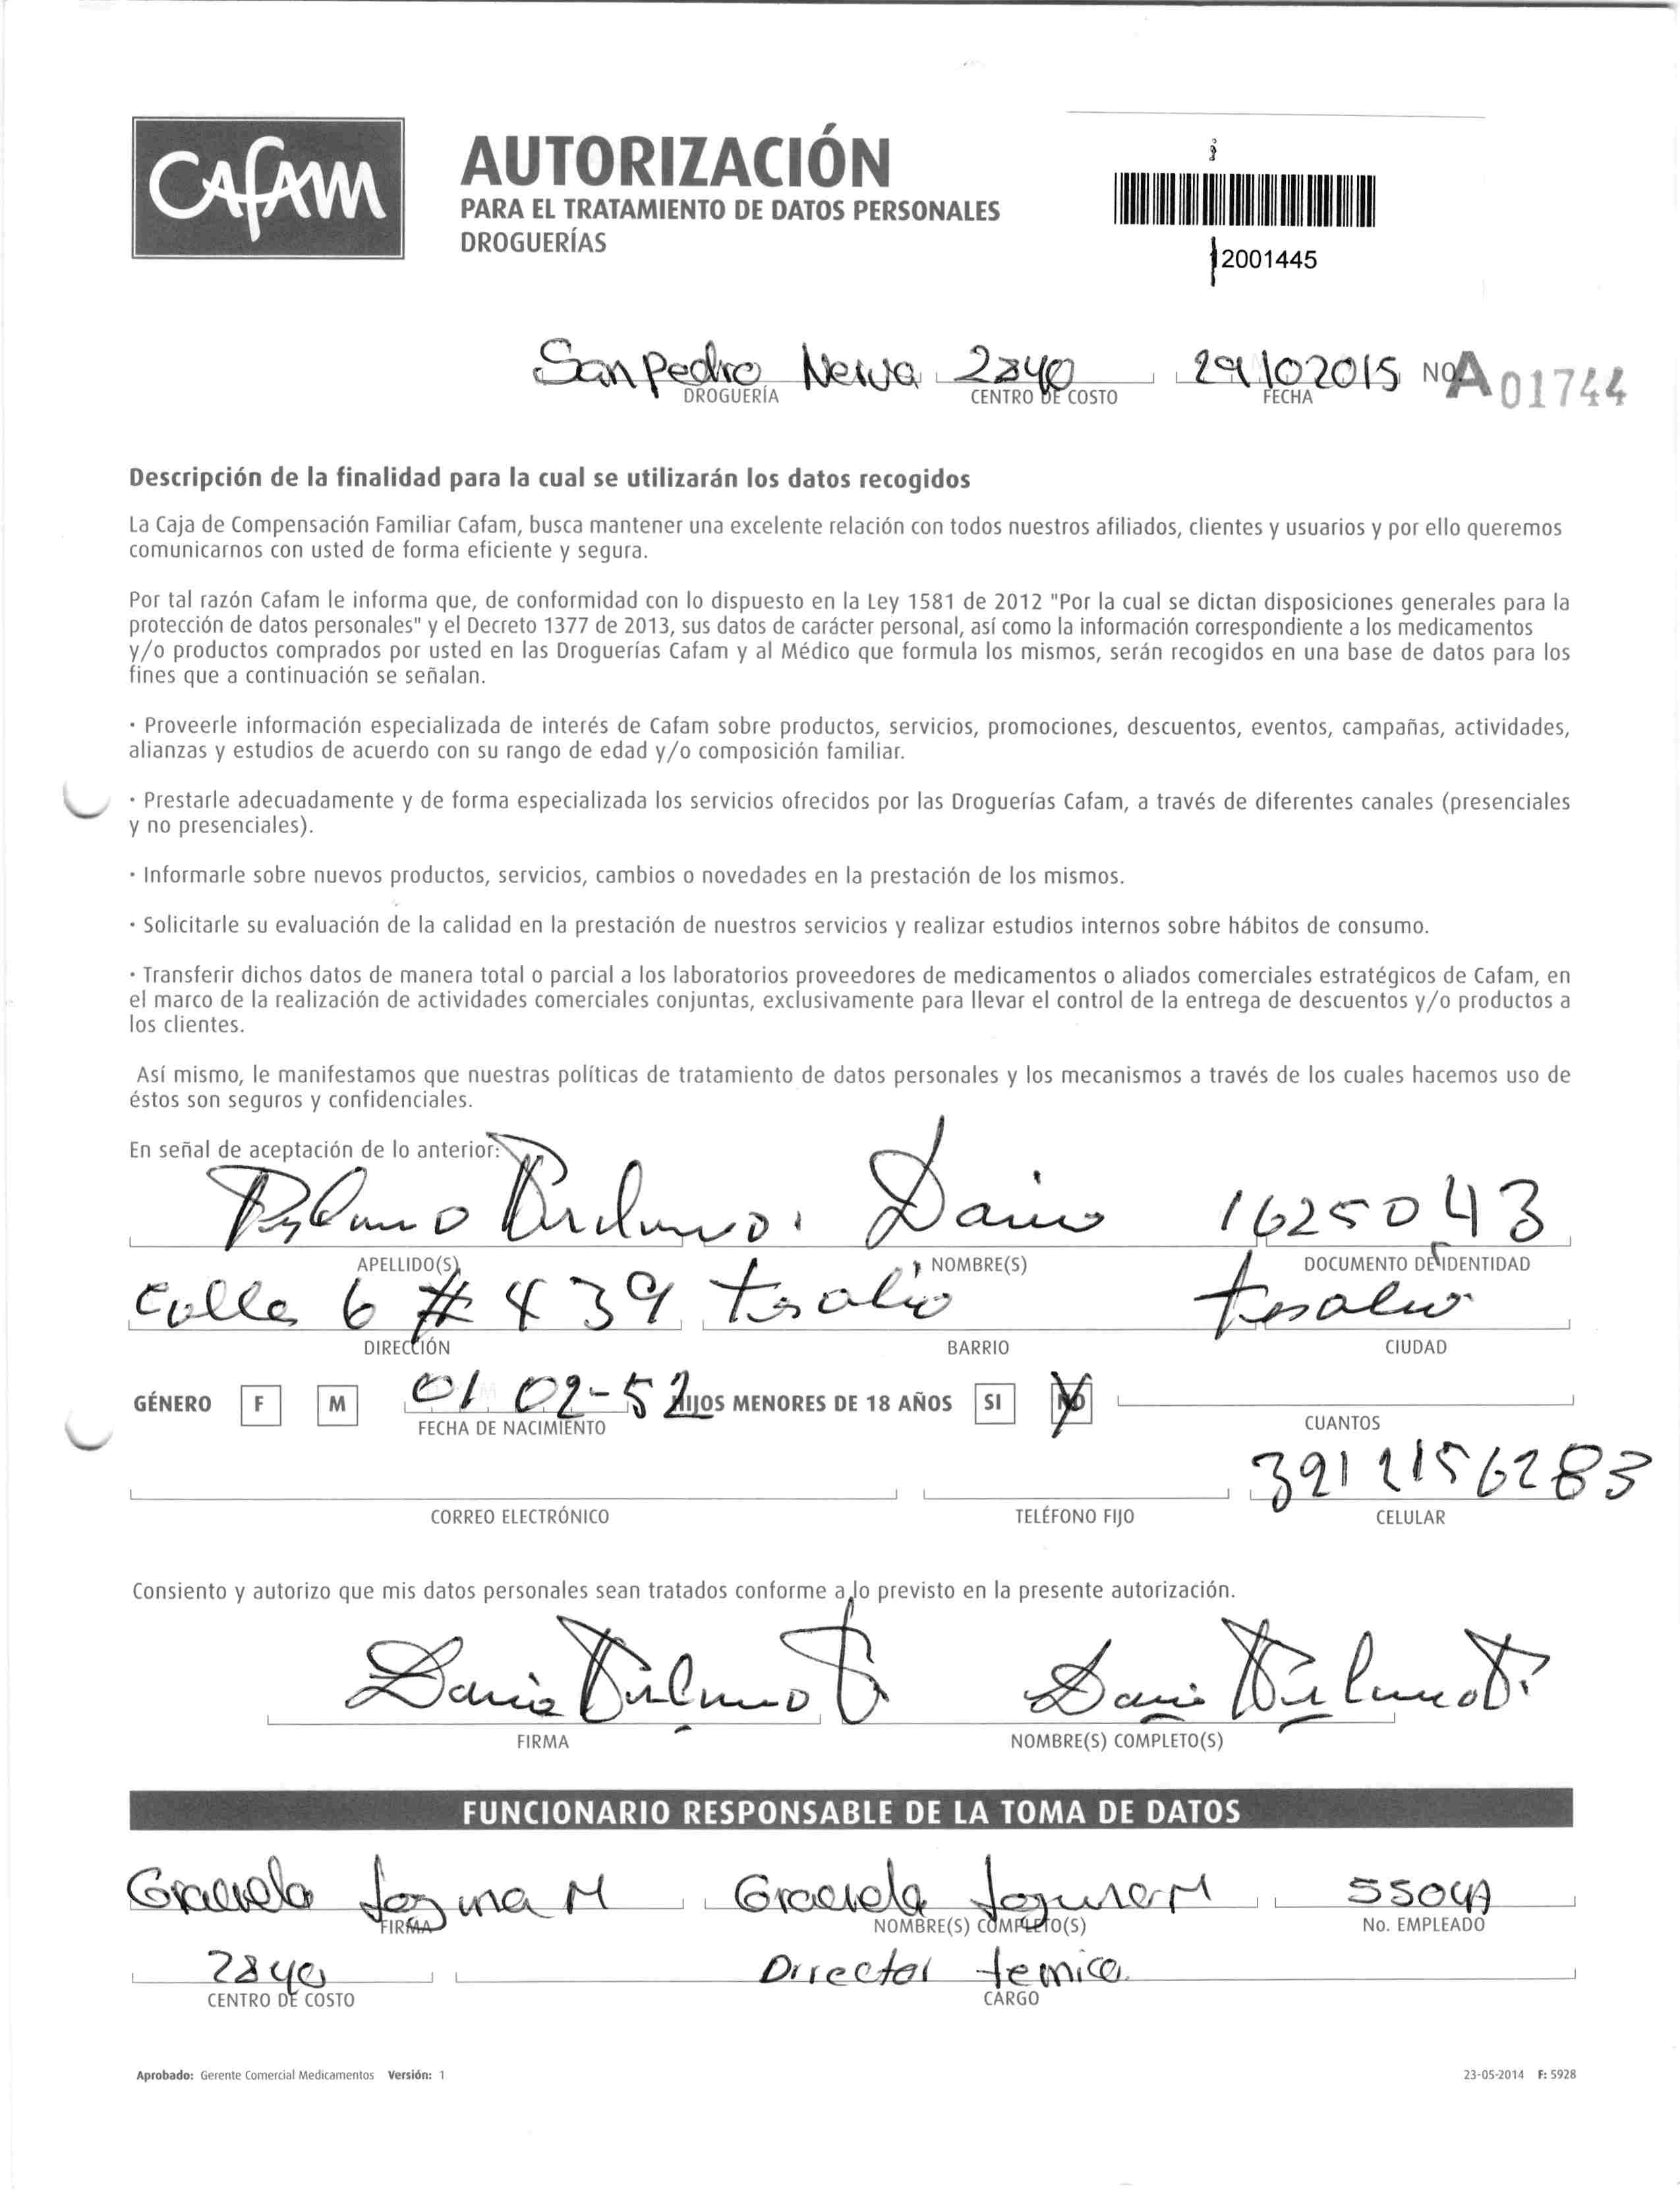 CAFAM
AUTORIZACIÓN
PARA EL TRATAMIENTO DE DATOS PERSONALES
DROGUERÍAS
2001445
San Pedro Neiva 2840 29 10 2015 NO. A 01744
DROGUERÍA CENTRO DE COSTO FECHA
Descripción de la finalidad para la cual se utilizarán los datos recogidos
La Caja de Compensación Familiar Cafam, busca mantener una excelente relación con todos nuestros afiliados, clientes y usuarios y por ello queremos
comunicarnos con usted de forma eficiente y segura.
Por tal razón Cafam le informa que, de conformidad con lo dispuesto en la Ley 1581 de 2012 "Por la cual se dictan disposiciones generales para la
protección de datos personales" y el Decreto 1377 de 2013, sus datos de carácter personal, así como la información correspondiente a los medicamentos
y/o productos comprados por usted en las Droguerías Cafam y al Médico que formula los mismos, serán recogidos en una base de datos para los
fines que a continuación se señalan.
· Proveerle información especializada de interés de Cafam sobre productos, servicios, promociones, descuentos, eventos, campañas, actividades,
alianzas y estudios de acuerdo con su rango de edad y/o composición familiar.
· Prestarle adecuadamente y de forma especializada los servicios ofrecidos por las Droguerías Cafam, a través de diferentes canales (presenciales
y no presenciales).
· Informarle sobre nuevos productos, servicios, cambios o novedades en la prestación de los mismos.
· Solicitarle su evaluación de la calidad en la prestación de nuestros servicios y realizar estudios internos sobre hábitos de consumo.
· Transferir dichos datos de manera total o parcial a los laboratorios proveedores de medicamentos o aliados comerciales estratégicos de Cafam, en
el marco de la realización de actividades comerciales conjuntas, exclusivamente para llevar el control de la entrega de descuentos y/o productos a
los clientes.
Así mismo, le manifestamos que nuestras políticas de tratamiento de datos personales y los mecanismos a través de los cuales hacemos uso de
éstos son seguros y confidenciales.
En señal de aceptación de lo anterior:
Dario 1625043
APELLIDO(S) NOMBRE(S) DOCUMENTO DE IDENTIDAD
Calle 6 # 4 39 tesalia tesalia
DIRECCIÓN BARRIO CIUDAD
GÉNERO F M 01 02-52 HIJOS MENORES DE 18 AÑOS SI NO
FECHA DE NACIMIENTO CUANTOS
3212156283
CORREO ELECTRÓNICO TELÉFONO FIJO CELULAR
Consiento y autorizo que mis datos personales sean tratados conforme a lo previsto en la presente autorización.
Dario Dario
FIRMA NOMBRE(S) COMPLETO(S)
FUNCIONARIO RESPONSABLE DE LA TOMA DE DATOS
Graciela M Graciela M
FIRMA NOMBRE(S) COMPLETO(S) No. EMPLEADO
2840 Director tecnico
CENTRO DE COSTO CARGO
Aprobado: Gerente Comercial Medicamentos Versión: 1 23-05-2014 F: 5928